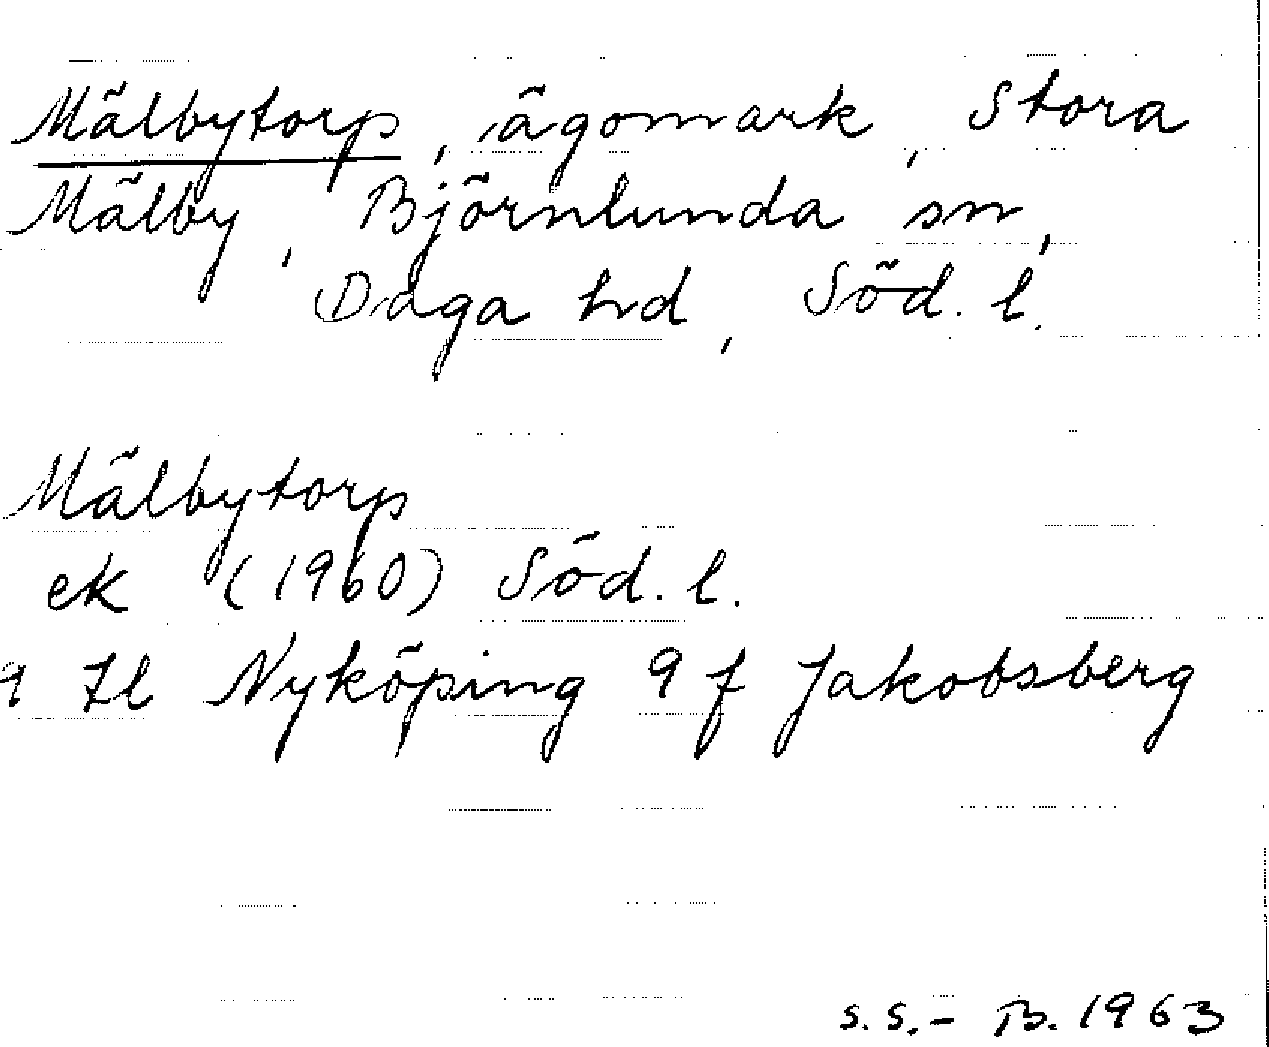 Mälbytorp, ägomark, Stora
Mälby, Björnlunda sn,
Daga hd, Söd. l.
Mälbytorp
ek (1960) Söd. l.
9 Il Nyköping 9 f Jakobsberg
s.s. - B. 1963